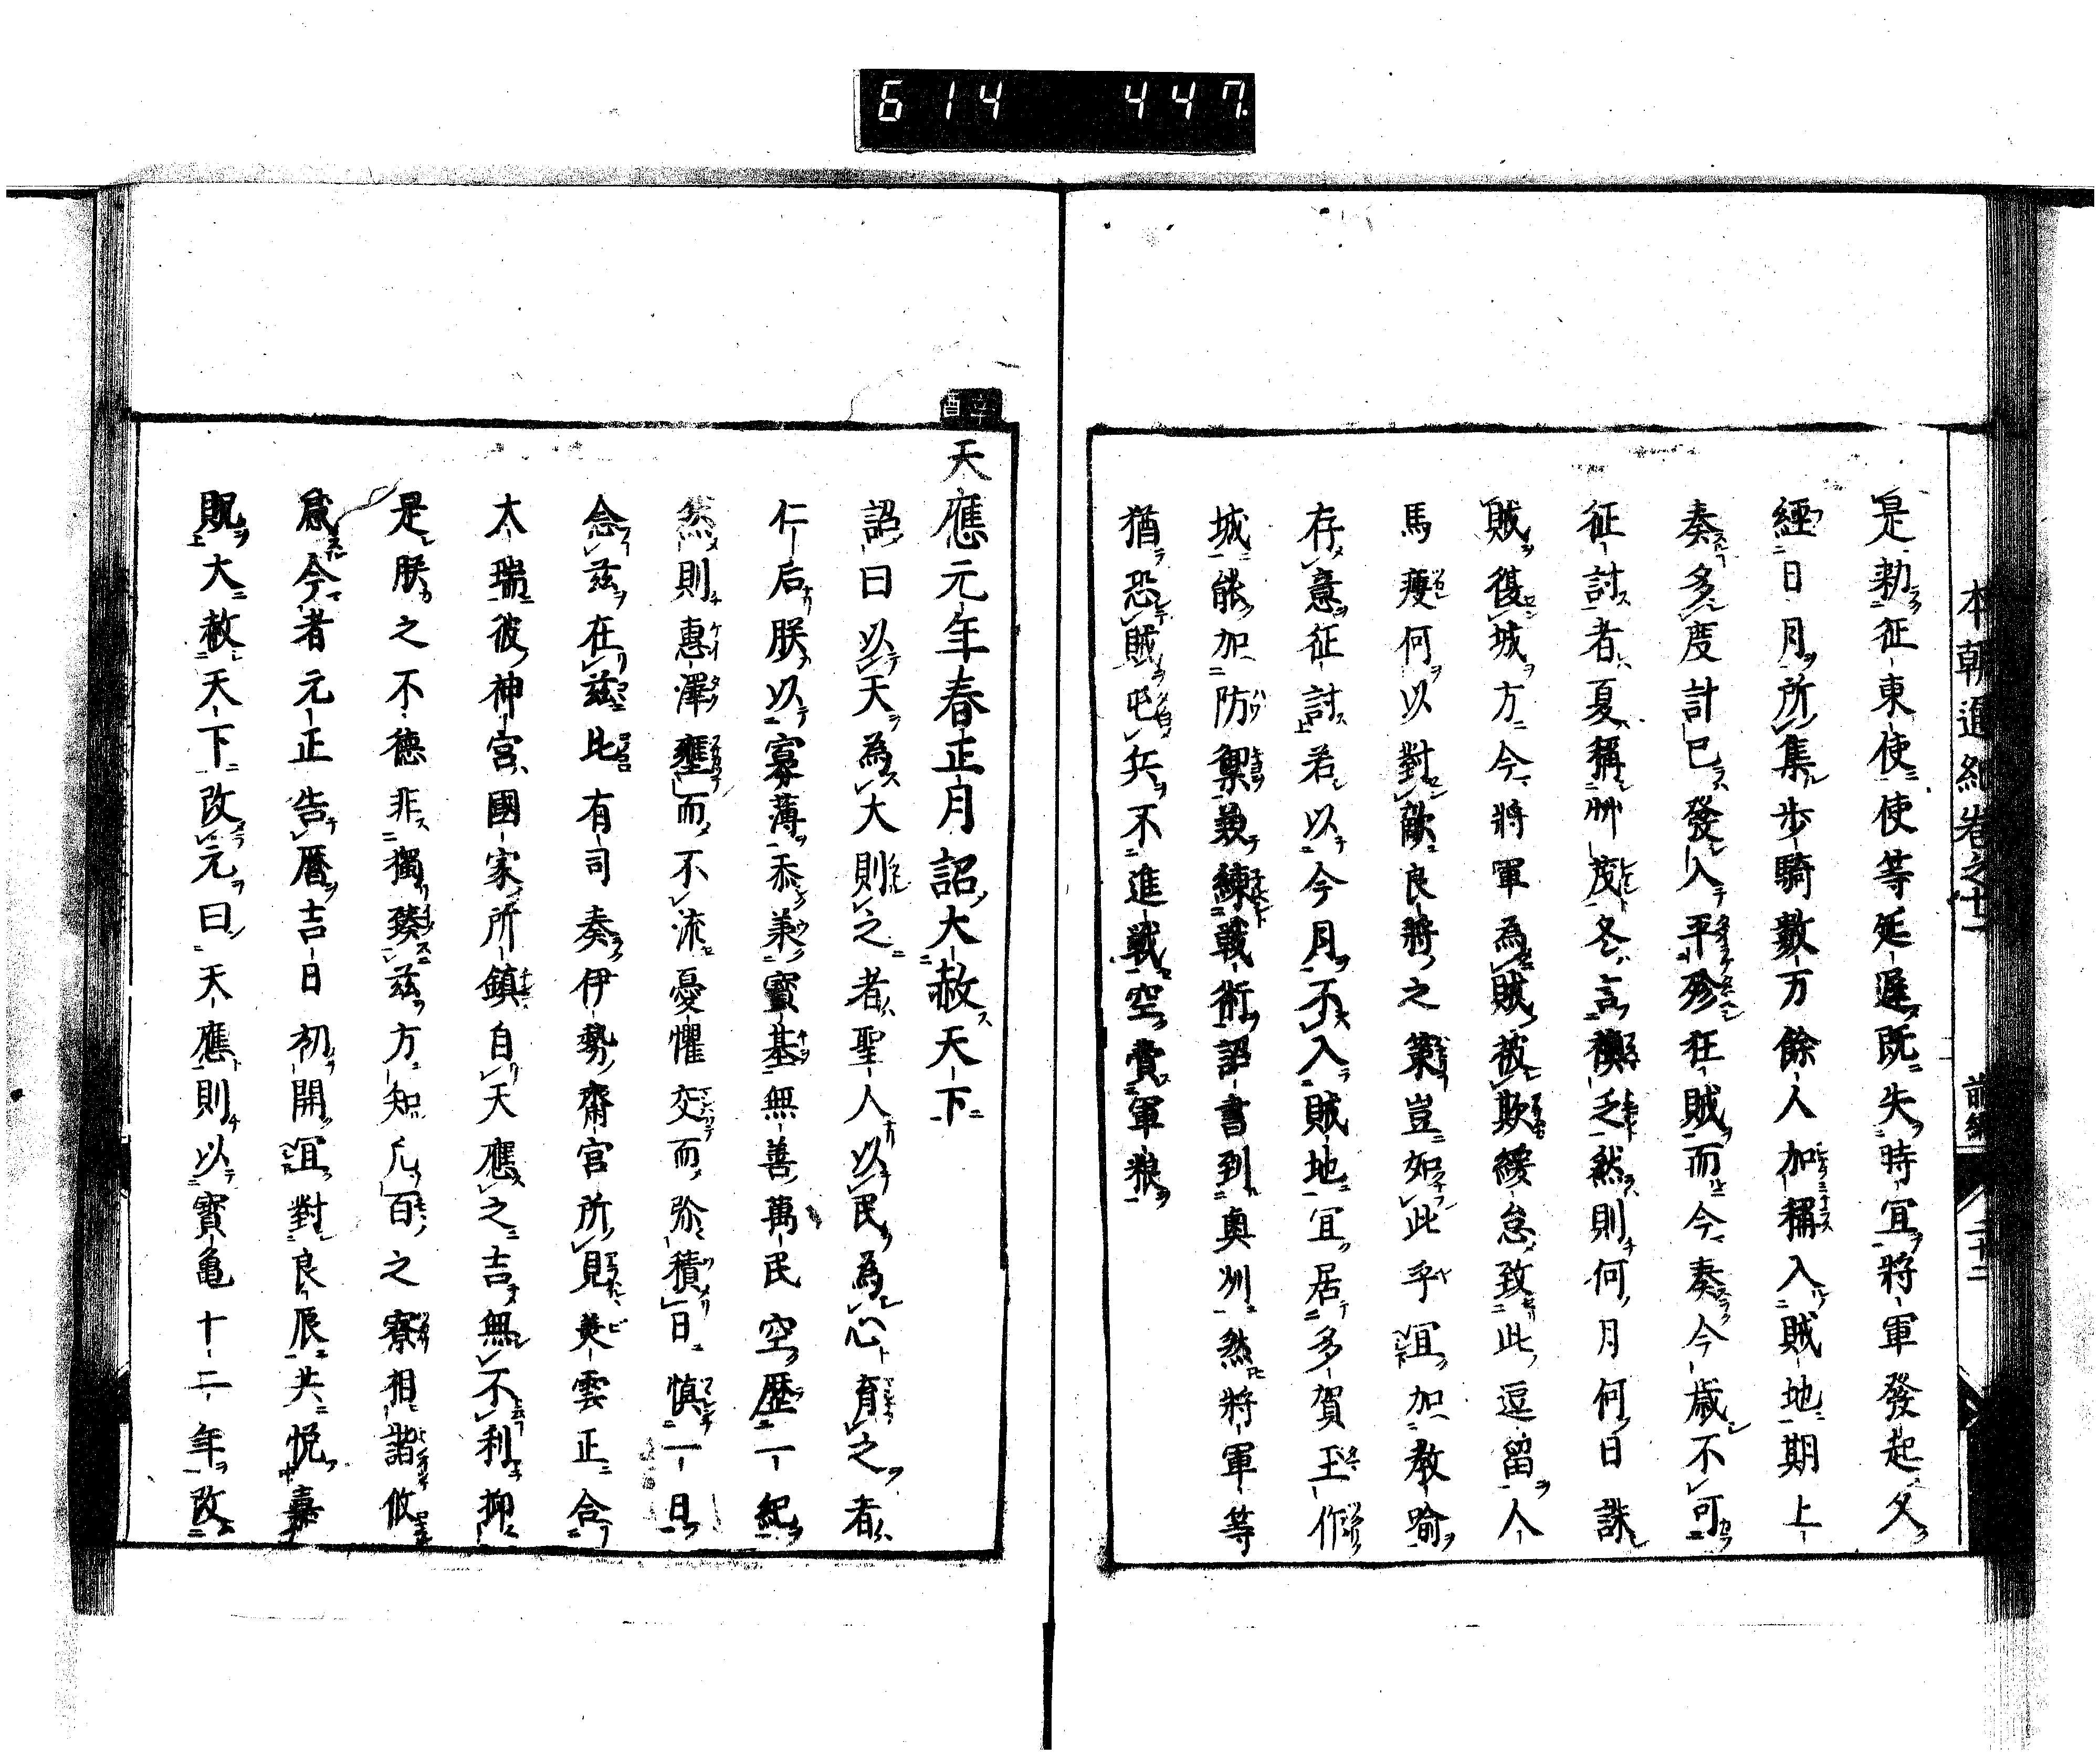 6 14 447.
本朝通紀卷之十一 前編 二十二
是勅征東使使等延遲既失時宜將軍發起久
經日月所集步騎數万餘人加稱入賊地期上
奏多度計已發入平殄狂賊而今奏今歲不可
征討者夏稱艸茂冬言襖乏然則何月何日誅
賊復城方今將軍為賊被欺緩怠致此逗留人
馬瘦何以對敵良將之策豈如此乎宜加教喻
存意征討若以今月不入賊地宜居多賀玉作
城能加防禦兼練戰術詔書到奥州然將軍等
猶恐賊屯兵不進戰空費軍粮
辛酉
天應元年春正月詔大赦天下
詔曰以天為大則之者聖人以民為心育之者
仁后朕以寡薄忝兼寳基無善萬民空歷一紀
然則惠澤壅而不流憂懼交而弥積日慎一日
念茲在茲比有司奏伊勢齋官所見美雲正合
大瑞彼神宮國家所鎮自天應之吉無不利抑
是朕之不德非獨臻茲方知凡百之寮相諧攸
感今者元正告曆吉日初開宜對良辰共悅嘉
貺大赦天下改元曰天應則以寳亀十二年改